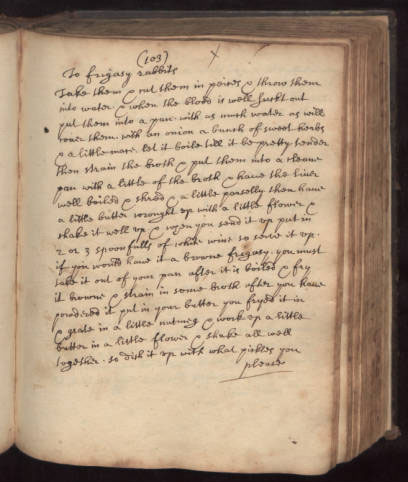 (103)
To frigasy rabbits
Take them & cut them in peices & throw them
into water & when the blood is well suckt out
put them into a pan with as much water as will
cover them with an onion a bunch of sweet herbs
& a little mace let it boile till it be pretty tender
then strain the broth & put them into a cleane
pan with a little of the broth & have the liver
well boiled & shred & a little parselly then have
a little butter wrought up with a little flower &
shake it well up & when you send it up put in
2 or 3 spoonfulls of white wine so serve it up
if you would have it a browne frigasy you must
take it out of your pan after it is boiled & fry
it browne & strain in some broth after you have
powdered it put in your butter you fryed it in
& grate in a little nutmeg & work up a little
butter in a little flower & shake all well
together. so dish it up with what pickles you
please